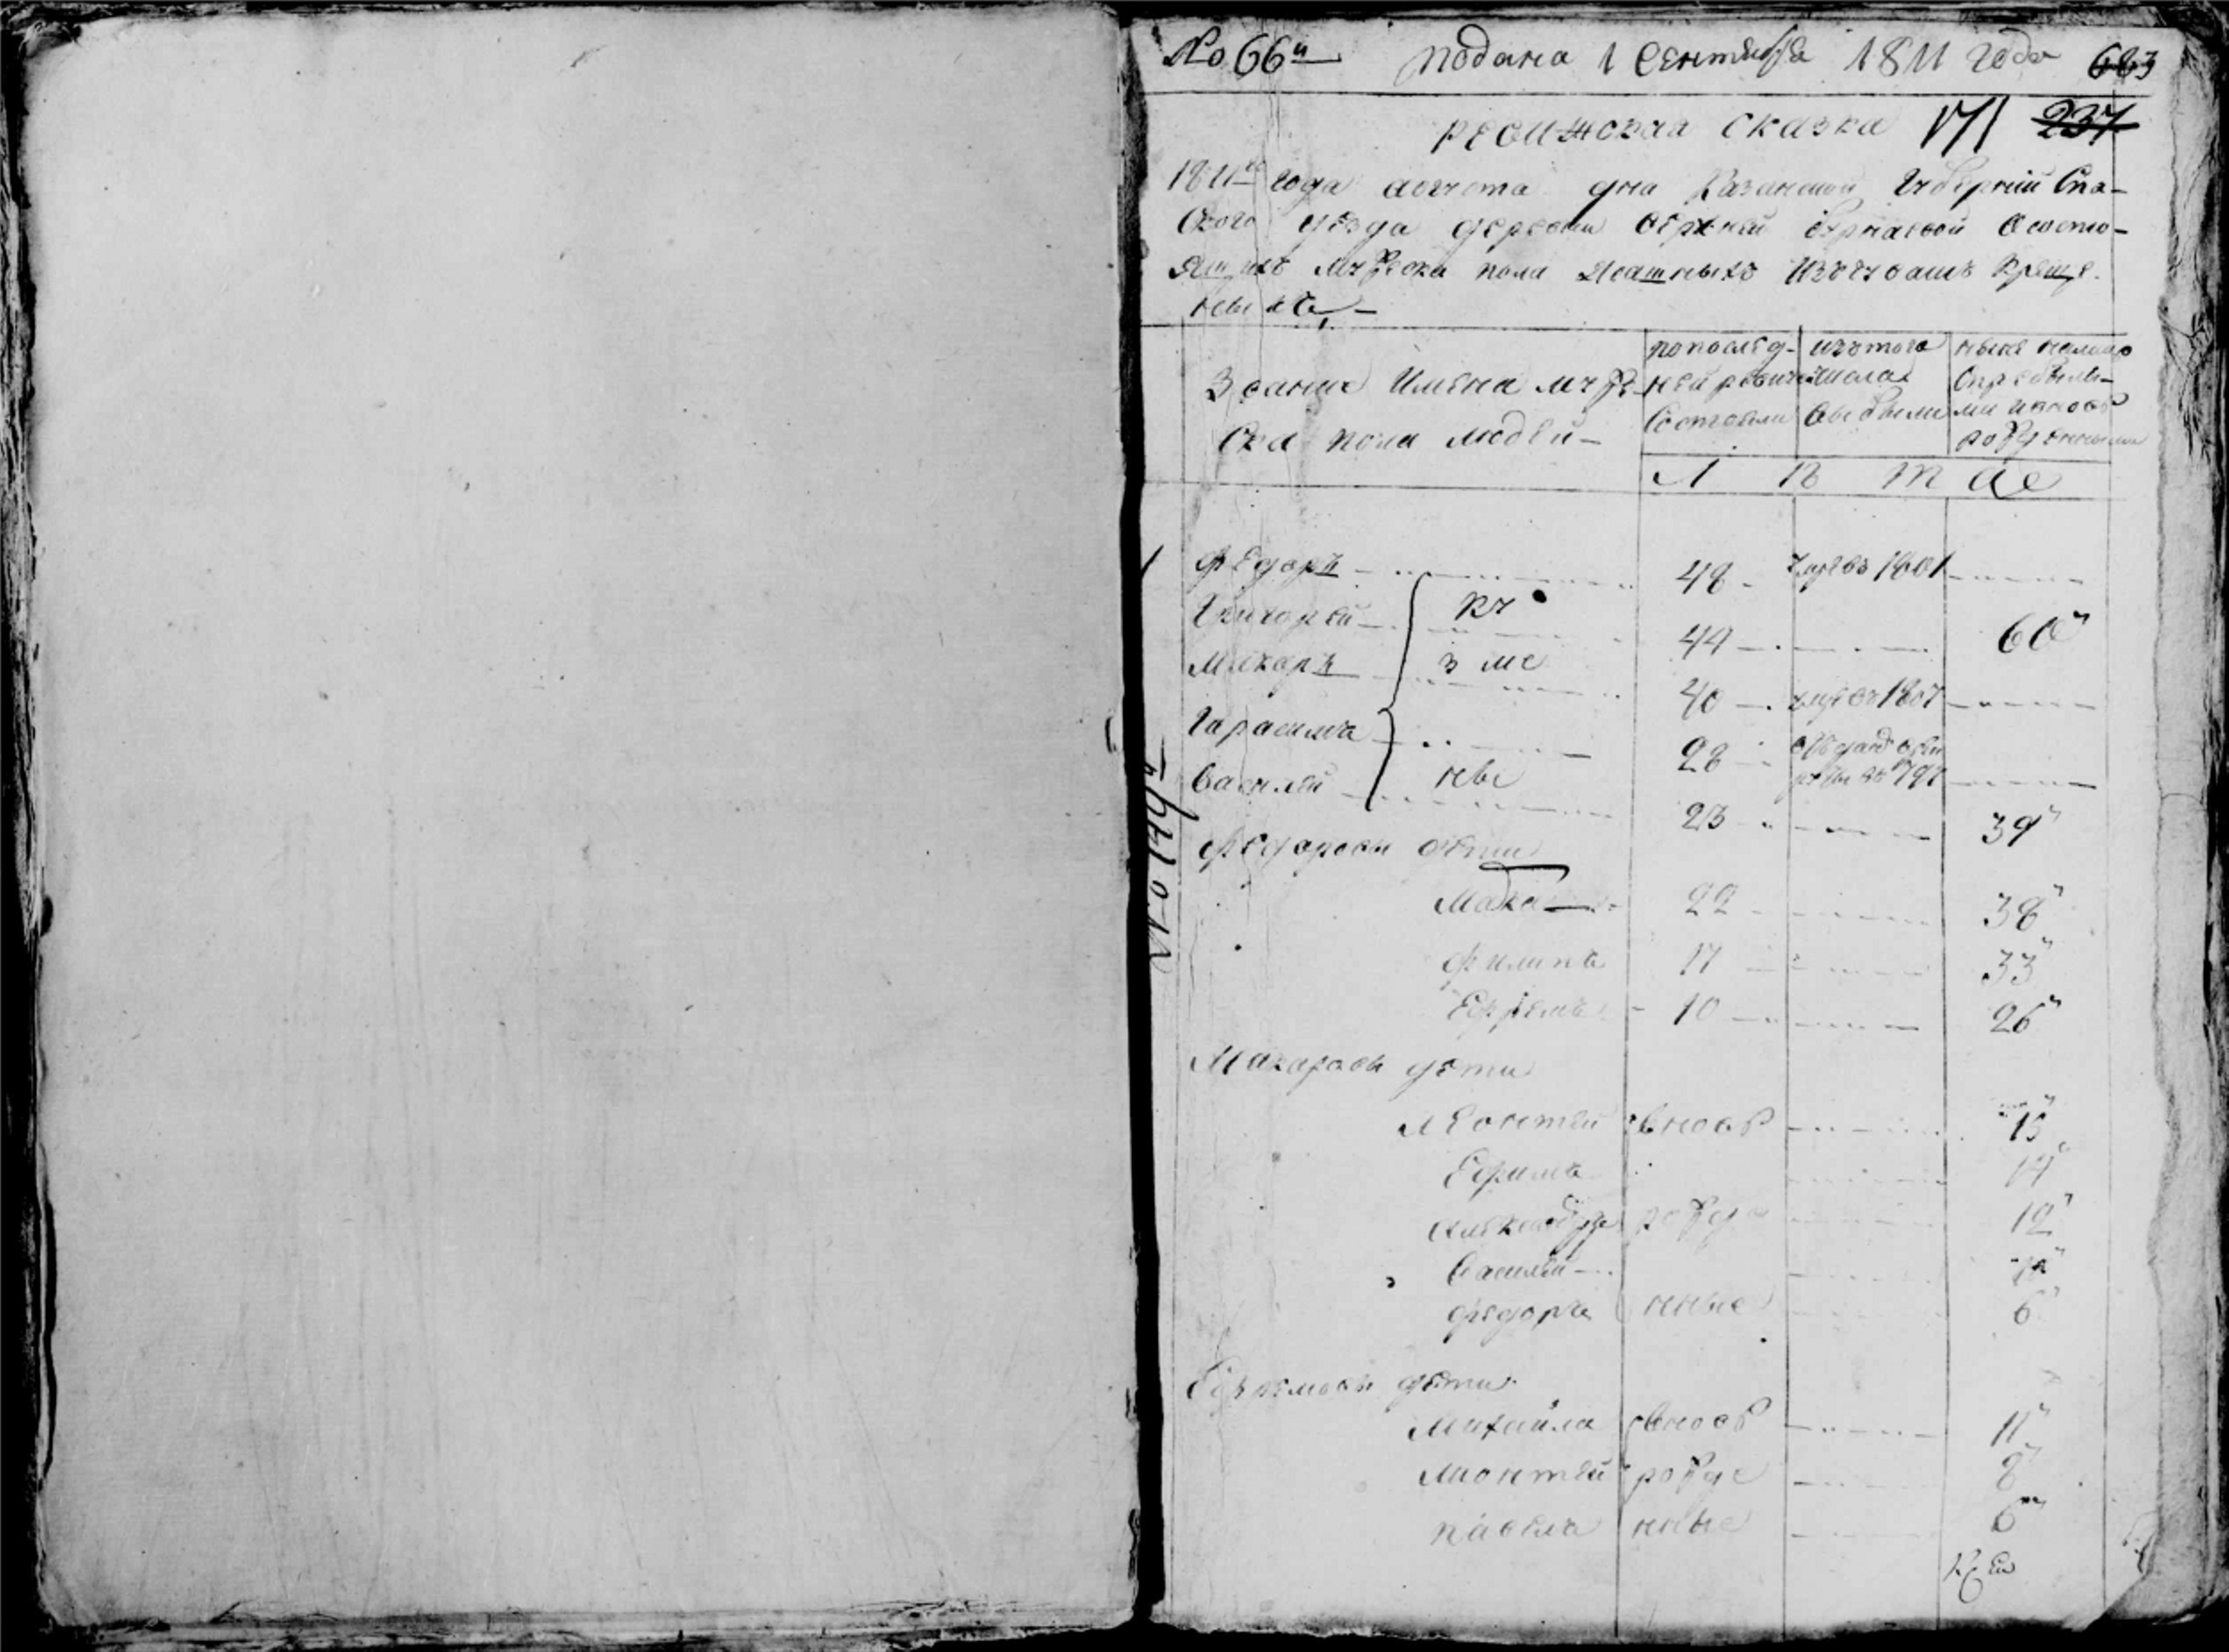 No 66й подана 1 Сентября 1811 года 683
ревижская сказка 171 237
1811го года августа дня Казанской Губернии Спа-
скаго уезда деревни верхней О состо-
ящихъ мужеска пола ясашныхъ изъ чувашъ креще-
ныхъ
Звание Имена муже-
ска пола людей
по послед-
ней ревизии
Состояли
изъ того
числа
выбыли
ныне налицо
Спребылы-
ми и вновь
рожденными
Л Е Т А
1 Федоръ 48 умре въ 1801
Григорей 44 60
Макаръ 40 умре въ 1807
Гарасимъ 28 отданъ въ рекруты въ 797
Василей 23 39
Федоровы дети
22 38
Филипъ 17 33
Ефремъ 10 26
Макаровы дети
Леонтей вновь 15
Ефимъ 14
Александръ рожде 12
Василей
Федоръ нные 6
Ефремовы дети
Михайла вновь 11
рожде 8
Павелъ нные 6